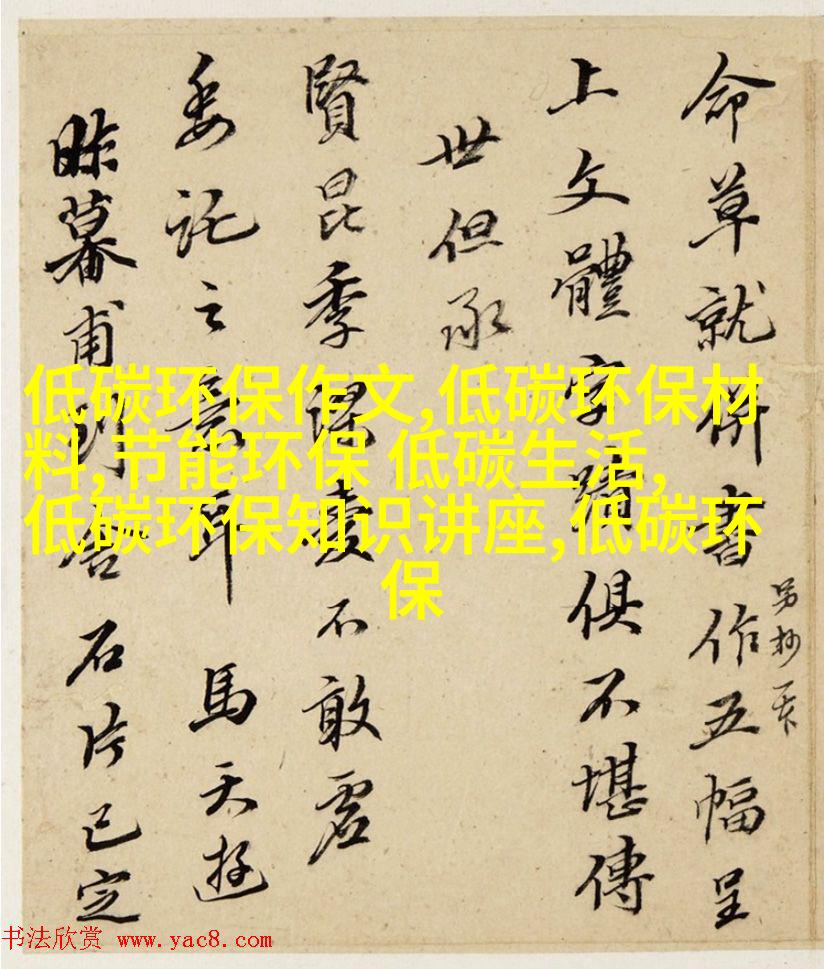 命草就併書作五幅呈
另抄
上文體字蹟俱不堪傳
世但承
賢昆季謬愛不敢虛
委託之意耳 馬天遊
昨暮甫到舍石片已定
低碳环保作文,低碳环保材
料,节能环保 低碳生活,
低碳环保知识讲座,低碳环
保
书法欣赏 www.yac8.com